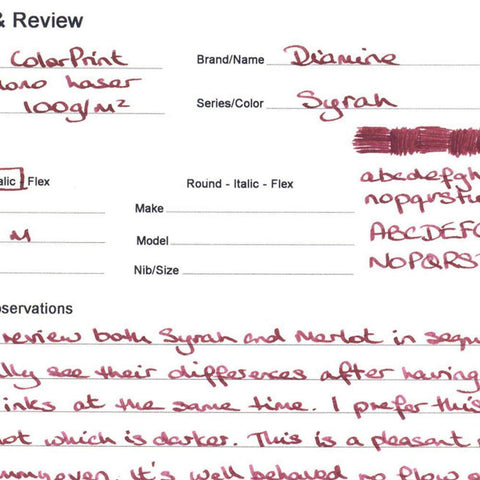 & Review
ColorPrint
Brand/Name Diamine
ono Laser
100g/M²
Series/Color Syrah
alic - Flex
Round - Italic - Flex
abcdefgh
nopqrstu
Make
ABCDEFG
M
Model
NOPQRST
Nib/Size
bservations
review both Syrah and Merlot in sequ
lly see their differences after having
inks at the same time. I prefer this
ot which is darker. This is a pleasant
mmy even. It's well behaved no flow